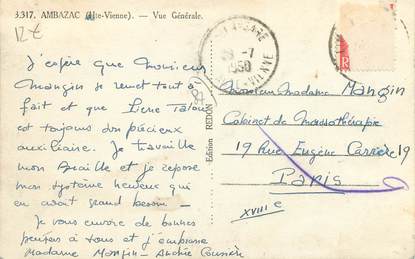 3.317. AMBAZAC (Hte-Vienne). — Vue Générale.
12 €
J'espère que Monsieur
Mangin se remet tout à
fait et que
est toujours son précieux
auxiliaire. Je travaille
mon Braille et je repose
mon système nerveux qui
en avait grand besoin —
Je vous envoie de bonnes
pensées à tous et j'embrasse
Madame Mangin — Andrée
Edition REDON
-7
1950
Monsieur Madame Mangin
Cabinet de Massothérapie
19 Rue Eugène Carrière 19
Paris
XVIII e